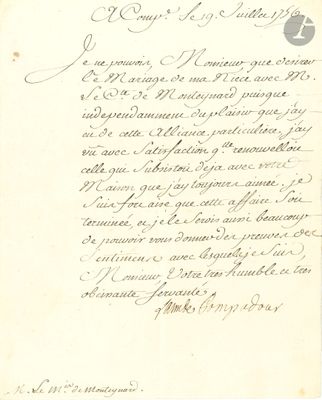 A Comp.e Le 19. Juillet 1756
Je ne pouvois, Monsieur que desirer
le Mariage de ma Niéce avec M.
Le C.te de Monteynard puisque
independamment du plaisir que j'ay
eu de cette Alliance particuliere, j'ay
vu avec Satisfaction q.lle renouvelloit
celle qui Subsistoit deja avec votre
Maison que j'ay toujours aimée, je
Suis fort aise que cette affaire Soit
terminée, et je le Serois aussi beaucoup
de pouvoir vous donner des preuves des
Sentimens avec lesquels je Suis,
Monsieur, Votre tres humble et tres
obeissante Servante
de Pompadour
M. Le M.is de Monteynard.